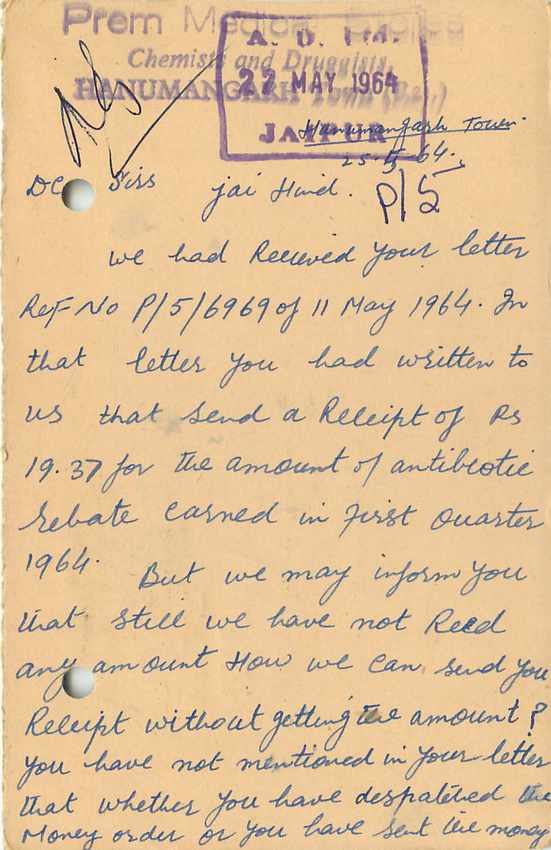 Prem Medical Stores
Chemists and Druggists,
HANUMANGARH Town (Raj.)
A. D. Ltd.
22 MAY 1964
JAIPUR
Hanumangarh Town.
25.5.64.
P/5
Sirs Jai Hind.
we had Recieved your letter
Ref No P/5/6969 of 11 May 1964. In
that letter you had written to
us that send a Receipt of Rs
19.37 for the amount of antibiotic
rebate earned in first quarter
1964.
But we may inform you
that still we have not Recd
any amount How we can send you
Receipt without getting the amount?
you have not mentioned in your letter
that whether you have despatched the
Money order or you have sent the money